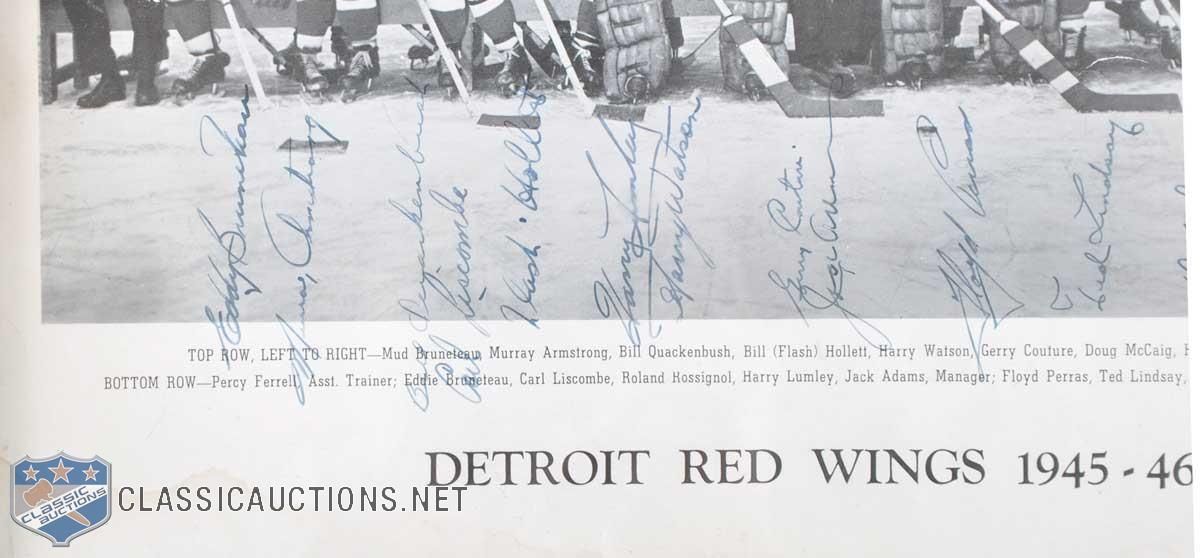 Eddy Bruneteau
Murray Armstrong
Bill Quackenbush
Carl Liscombe
"Flash" Hollett
Harry Lumley
Harry Watson
Gerry Couture
Jack Adams
Floyd Perras
Ted Lindsay
TOP ROW, LEFT TO RIGHT—Mud Bruneteau, Murray Armstrong, Bill Quackenbush, Bill (Flash) Hollett, Harry Watson, Gerry Couture, Doug McCaig, H
BOTTOM ROW—Percy Ferrell, Asst. Trainer; Eddie Bruneteau, Carl Liscombe, Roland Rossignol, Harry Lumley, Jack Adams, Manager; Floyd Perras, Ted Lindsay,
DETROIT RED WINGS 1945-46
CLASSIC AUCTIONS
CLASSICAUCTIONS.NET